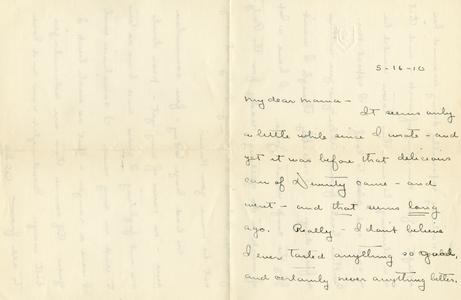 5-16-10
My dear Mama -
It seems only
a little while since I wrote - and
yet it was before that delicious
can of Divinity came - and
went - and that seems long
ago. Really - I don't believe
I ever tasted anything so good,
and certainly never anything better.